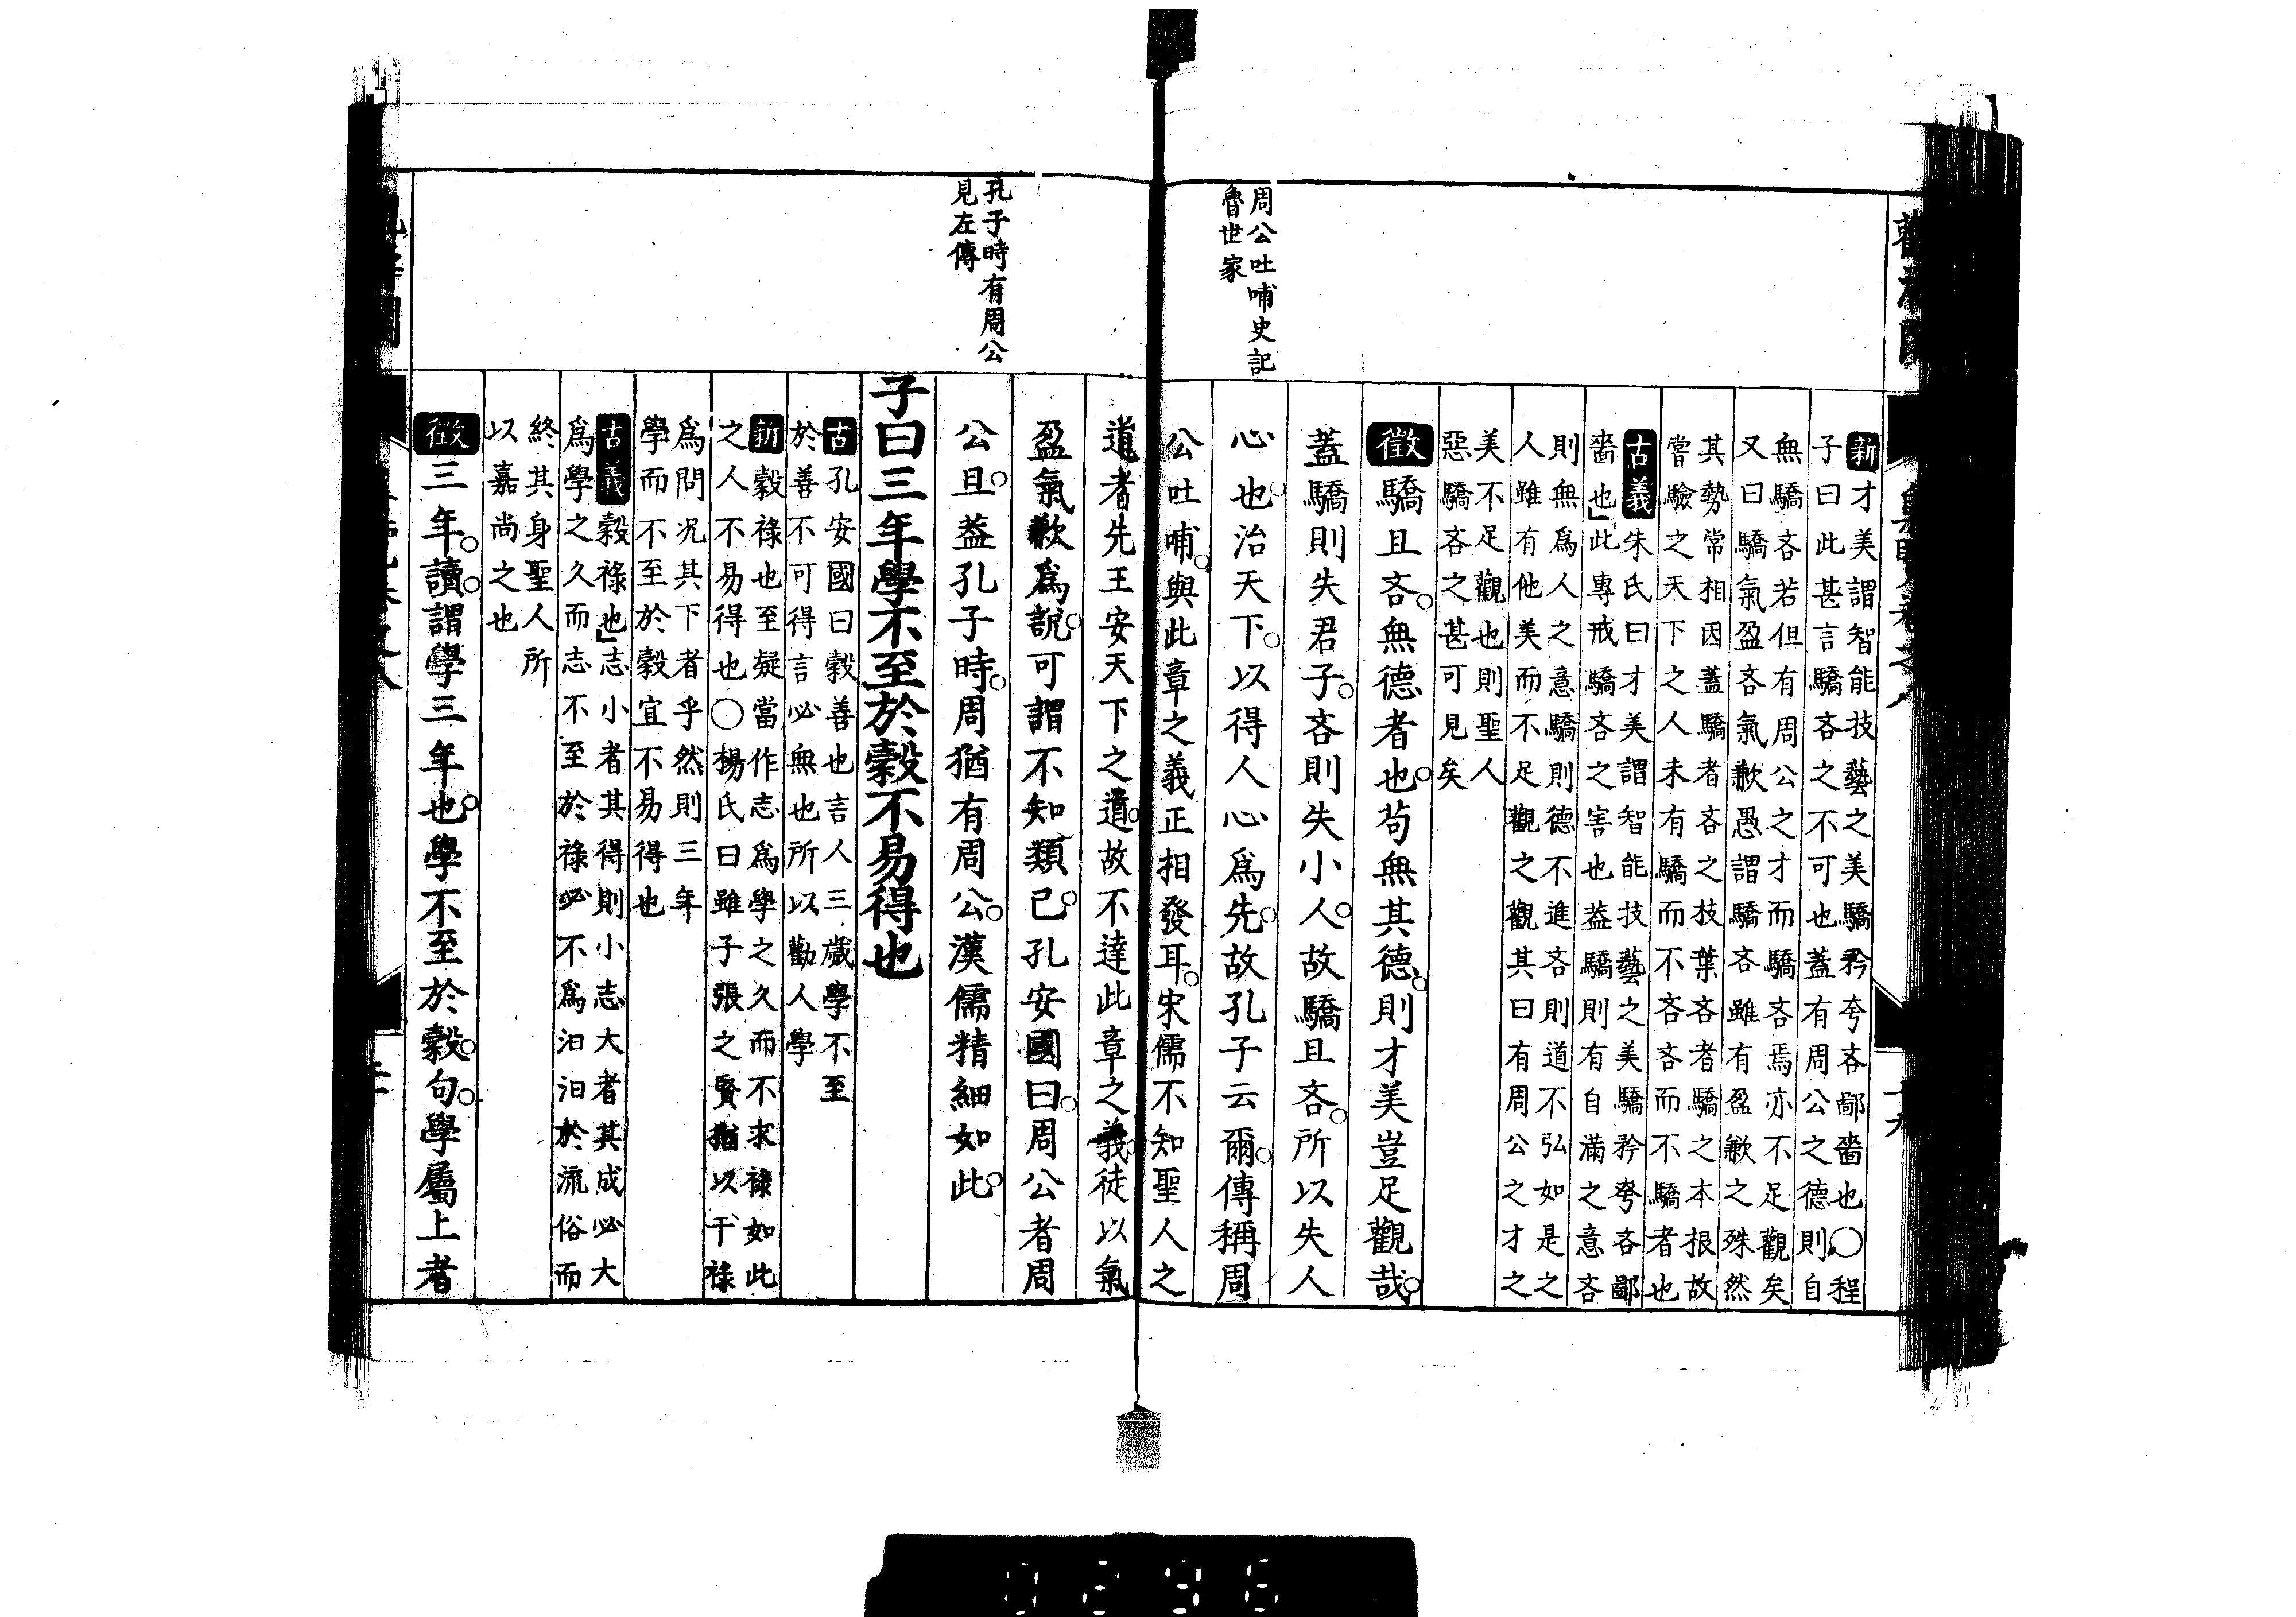 周公吐哺史記
魯世家
新才美謂智能技藝之美驕矜夸吝鄙嗇也○程
子曰此甚言驕吝之不可也蓋有周公之德則自
無驕吝若但有周公之才而驕吝焉亦不足觀矣
又曰驕氣盈吝氣歉愚謂驕吝雖有盈歉之殊然
其勢常相因蓋驕者吝之技葉吝者驕之本根故
嘗驗之天下之人未有驕而不吝吝而不驕者也
古義朱氏曰才美謂智能技藝之美驕矜夸吝鄙
嗇也」此專戒驕吝之害也葢驕則有自滿之意吝
則無爲人之意驕則德不進吝則道不弘如是之
人雖有他美而不足觀之觀其曰有周公之才之
美不足觀也則聖人
惡驕吝之甚可見矣
徵驕且吝。無德者也。苟無其德。則才美豈足觀哉。
蓋驕則失君子。吝則失小人。故驕且吝。所以失人
心也。治天下。以得人心爲先。故孔子云爾。傳稱周
公吐哺。與此章之義正相發耳。宋儒不知聖人之
孔子時有周公
見左傳
道者先王安天下之道。故不達此章之義。徒以氣
盈氣歉爲說。可謂不知類已。孔安國曰。周公者周
公且。葢孔子時。周猶有周公。漢儒精細如此。
子曰三年學不至於穀不易得也
古孔安國曰穀善也言人三歲學不至
於善不可得言必無也所以勸人學
新穀祿也至疑當作志爲學之久而不求祿如此
之人不易得也○楊氏曰雖子張之賢猶以干祿
爲問况其下者乎然則三年
學而不至於穀宜不易得也
古義穀祿也」志小者其得則小志大者其成必大
爲學之久而志不至於祿必不爲汩汩於流俗而
終其身聖人所
以嘉尚之也
徵三年。讀。謂學三年也。學不至於穀。句。學屬上者